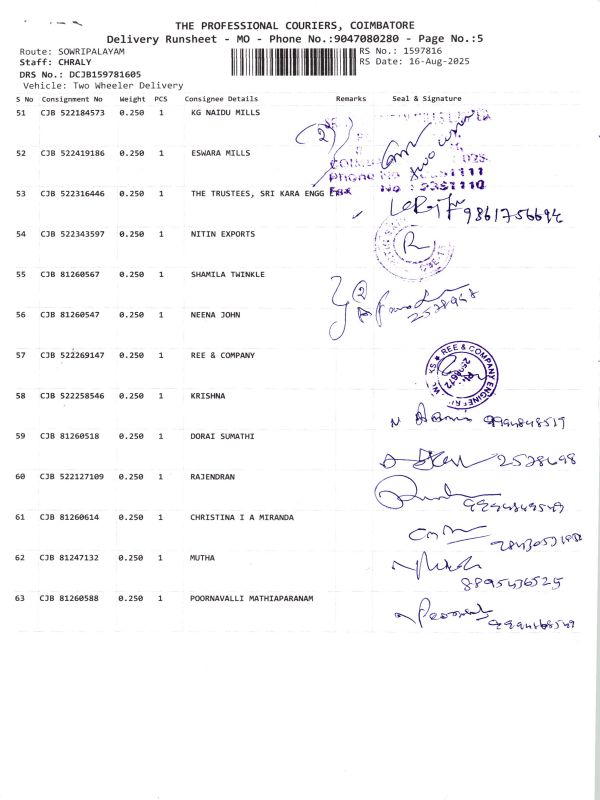 THE PROFESSIONAL COURIERS, COIMBATORE
Delivery Runsheet - MO - Phone No.:9047080280 - Page No.:5
Route: SOWRIPALAYAM RS No.: 1597816
Staff: CHRALY RS Date: 16-Aug-2025
DRS No.: DCJB159781605
Vehicle: Two Wheeler Delivery
S No Consignment No Weight PCS Consignee Details Remarks Seal & Signature
51 CJB 522184573 0.250 1 KG NAIDU MILLS
(2)
52 CJB 522419186 0.250 1 ESWARA MILLS
Phone No
53 CJB 522316446 0.250 1 THE TRUSTEES, SRI KARA ENGG
Fax No : 9351110
9861756694
54 CJB 522343597 0.250 1 NITIN EXPORTS
55 CJB 81260567 0.250 1 SHAMILA TWINKLE
2
56 CJB 81260547 0.250 1 NEENA JOHN
57 CJB 522269147 0.250 1 REE & COMPANY
REE & COMPANY ENGINEERING
58 CJB 522258546 0.250 1 KRISHNA
9994848519
59 CJB 81260518 0.250 1 DORAI SUMATHI
2528698
60 CJB 522127109 0.250 1 RAJENDRAN
61 CJB 81260614 0.250 1 CHRISTINA I A MIRANDA
62 CJB 81247132 0.250 1 MUTHA
8895436525
63 CJB 81260588 0.250 1 POORNAVALLI MATHIAPARANAM